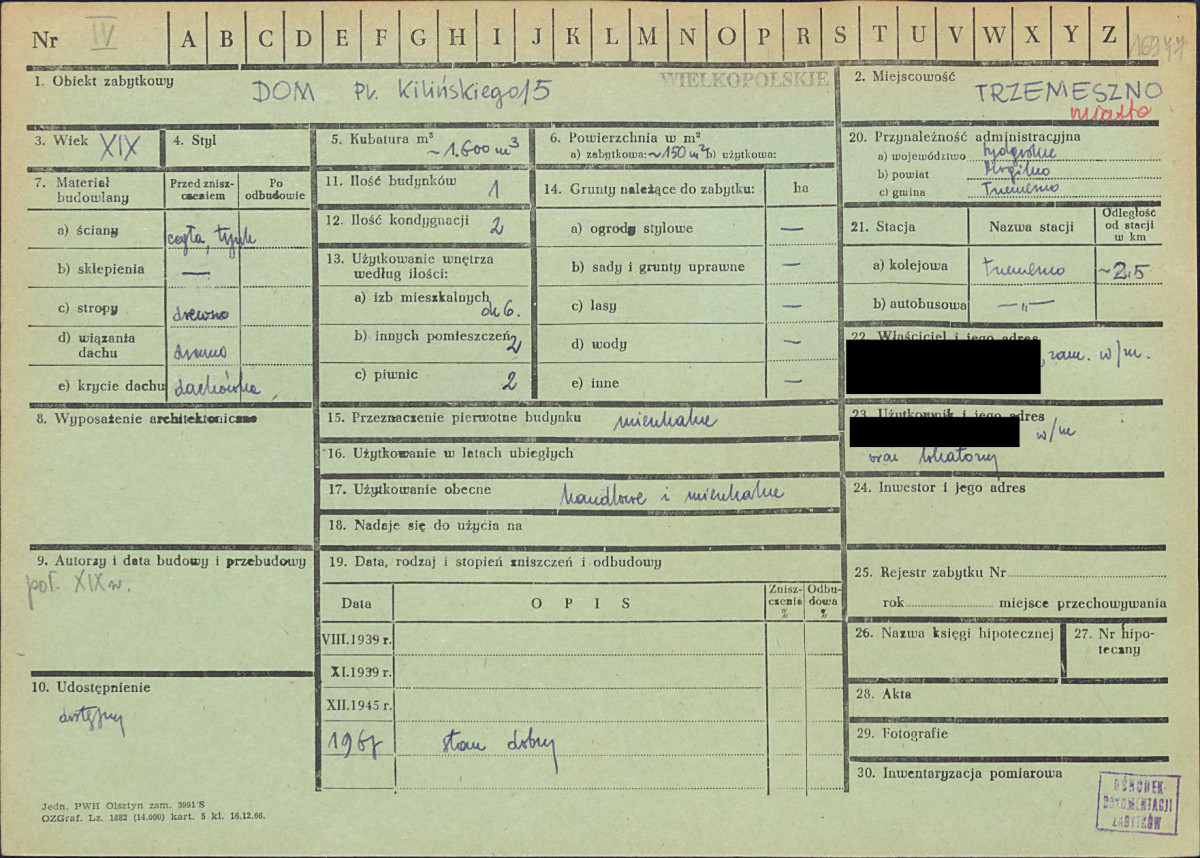 Nr IV A B C D E F G H I J K L M N O P R S T U V W X Y Z 16977
1. Obiekt zabytkowy DOM Pl. Kilińskiego 15 WIELKOPOLSKIE
2. Miejscowość TRZEMESZNO
miasto
3. Wiek XIX
4. Styl
5. Kubatura m³ ~1.600 m³
6. Powierzchnia w m²
a) zabytkowa: ~150 m² b) użytkowa:
20. Przynależność administracyjna
a) województwo bydgoskie
b) powiat Mogilno
c) gmina Trzemeszno
7. Materiał budowlany
Przed zniszczeniem
Po odbudowie
a) ściany cegła, tynk
b) sklepienia —
c) stropy drewno
d) wiązania dachu drewno
e) krycie dachu dachówka
8. Wyposażenie architektoniczne
9. Autorzy i data budowy i przebudowy
poł. XIX w.
10. Udostępnienie
dostępny
11. Ilość budynków 1
12. Ilość kondygnacji 2
13. Użytkowanie wnętrza według ilości:
a) izb mieszkalnych ok 6.
b) innych pomieszczeń 2
c) piwnic 2
14. Grunty należące do zabytku: ha
a) ogrody stylowe —
b) sady i grunty uprawne —
c) lasy —
d) wody —
e) inne —
15. Przeznaczenie pierwotne budynku mieszkalne
16. Użytkowanie w latach ubiegłych
17. Użytkowanie obecne handlowe i mieszkalne
18. Nadaje się do użycia na
19. Data, rodzaj i stopień zniszczeń i odbudowy
Data OPIS Zniszczenia % Odbudowa %
VIII.1939 r.
XI.1939 r.
XII.1945 r.
1967 stan dobry
21. Stacja Nazwa stacji Odległość od stacji w km
a) kolejowa Trzemeszno ~2,5
b) autobusowa —„—
22. Właściciel i jego adres
, zam. w/m.
23. Użytkownik i jego adres
w/m
oraz lokatorzy
24. Inwestor i jego adres
25. Rejestr zabytku Nr
rok miejsce przechowywania
26. Nazwa księgi hipotecznej
27. Nr hipoteczny
28. Akta
29. Fotografie
30. Inwentaryzacja pomiarowa
OŚRODEK
DOKUMENTACJI
ZABYTKÓW
Jedn. PWH Olsztyn zam. 3991/S
OZGraf. Lz. 1882 (14.000) kart. 5 kl. 16.12.66.